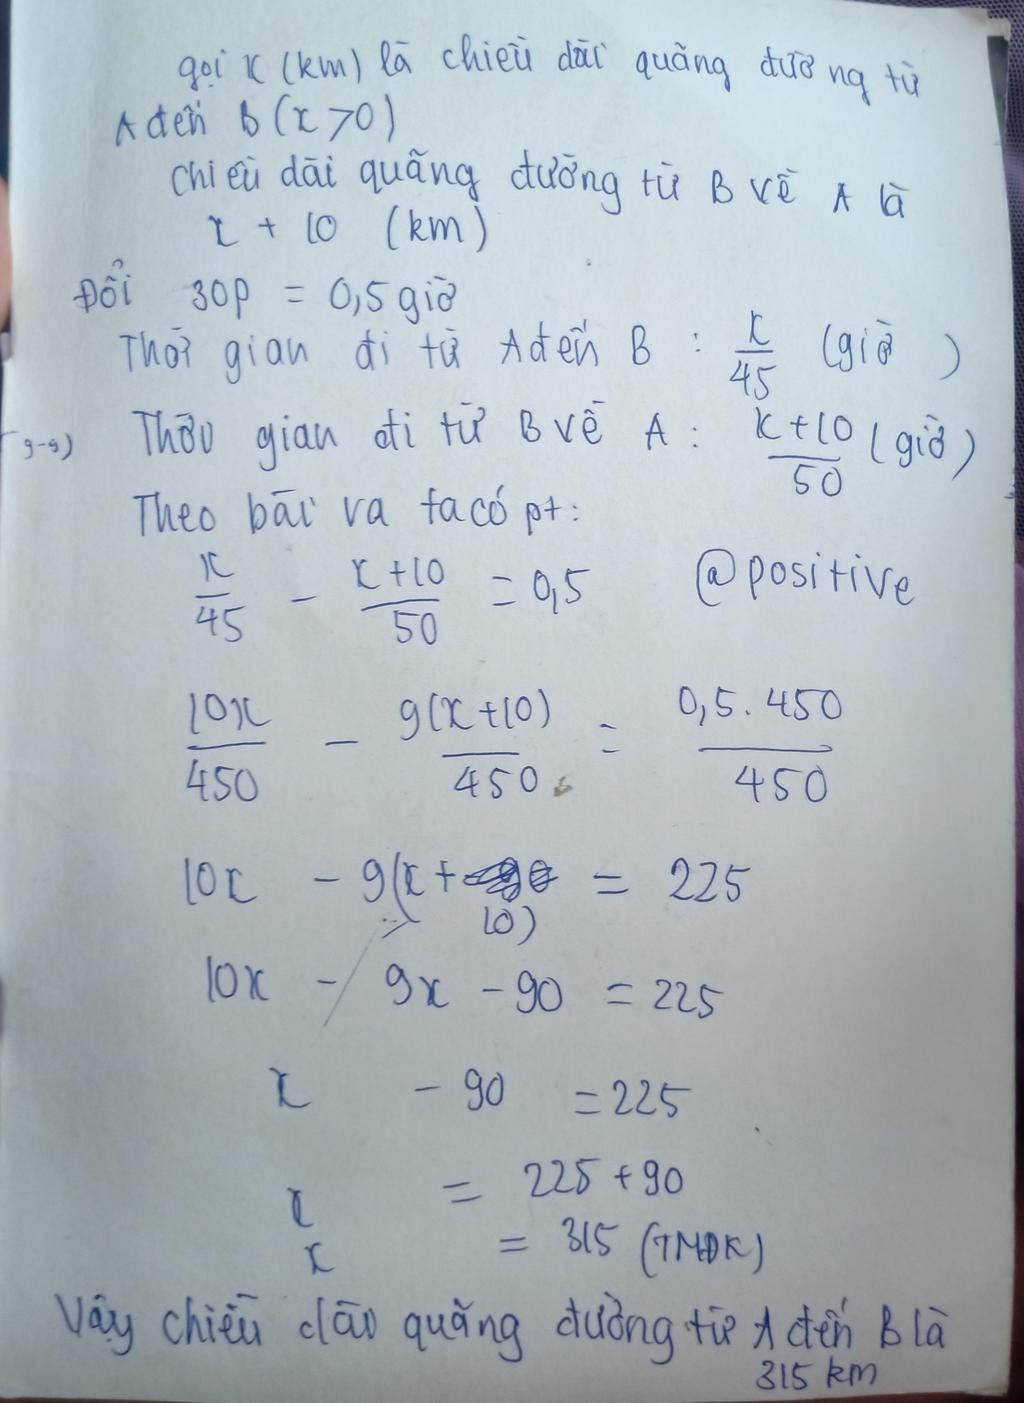 gọi x (km) là chiều dài quãng đường từ
A đến B (x > 0)
chiều dài quãng đường từ B về A là
x + 10 (km)
Đổi 30p = 0,5 giờ
Thời gian đi từ A đến B : x/45 (giờ)
Thời gian đi từ B về A : x+10/50 (giờ)
Theo bài va ta có pt:
x/45 - x+10/50 = 0,5 @positive
10x/450 - 9(x+10)/450 = 0,5.450/450
10x - 9(x+10) = 225
10x - 9x - 90 = 225
x - 90 = 225
x = 225 + 90
x = 315 (TMĐK)
Vậy chiều dài quãng đường từ A đến B là
315 km